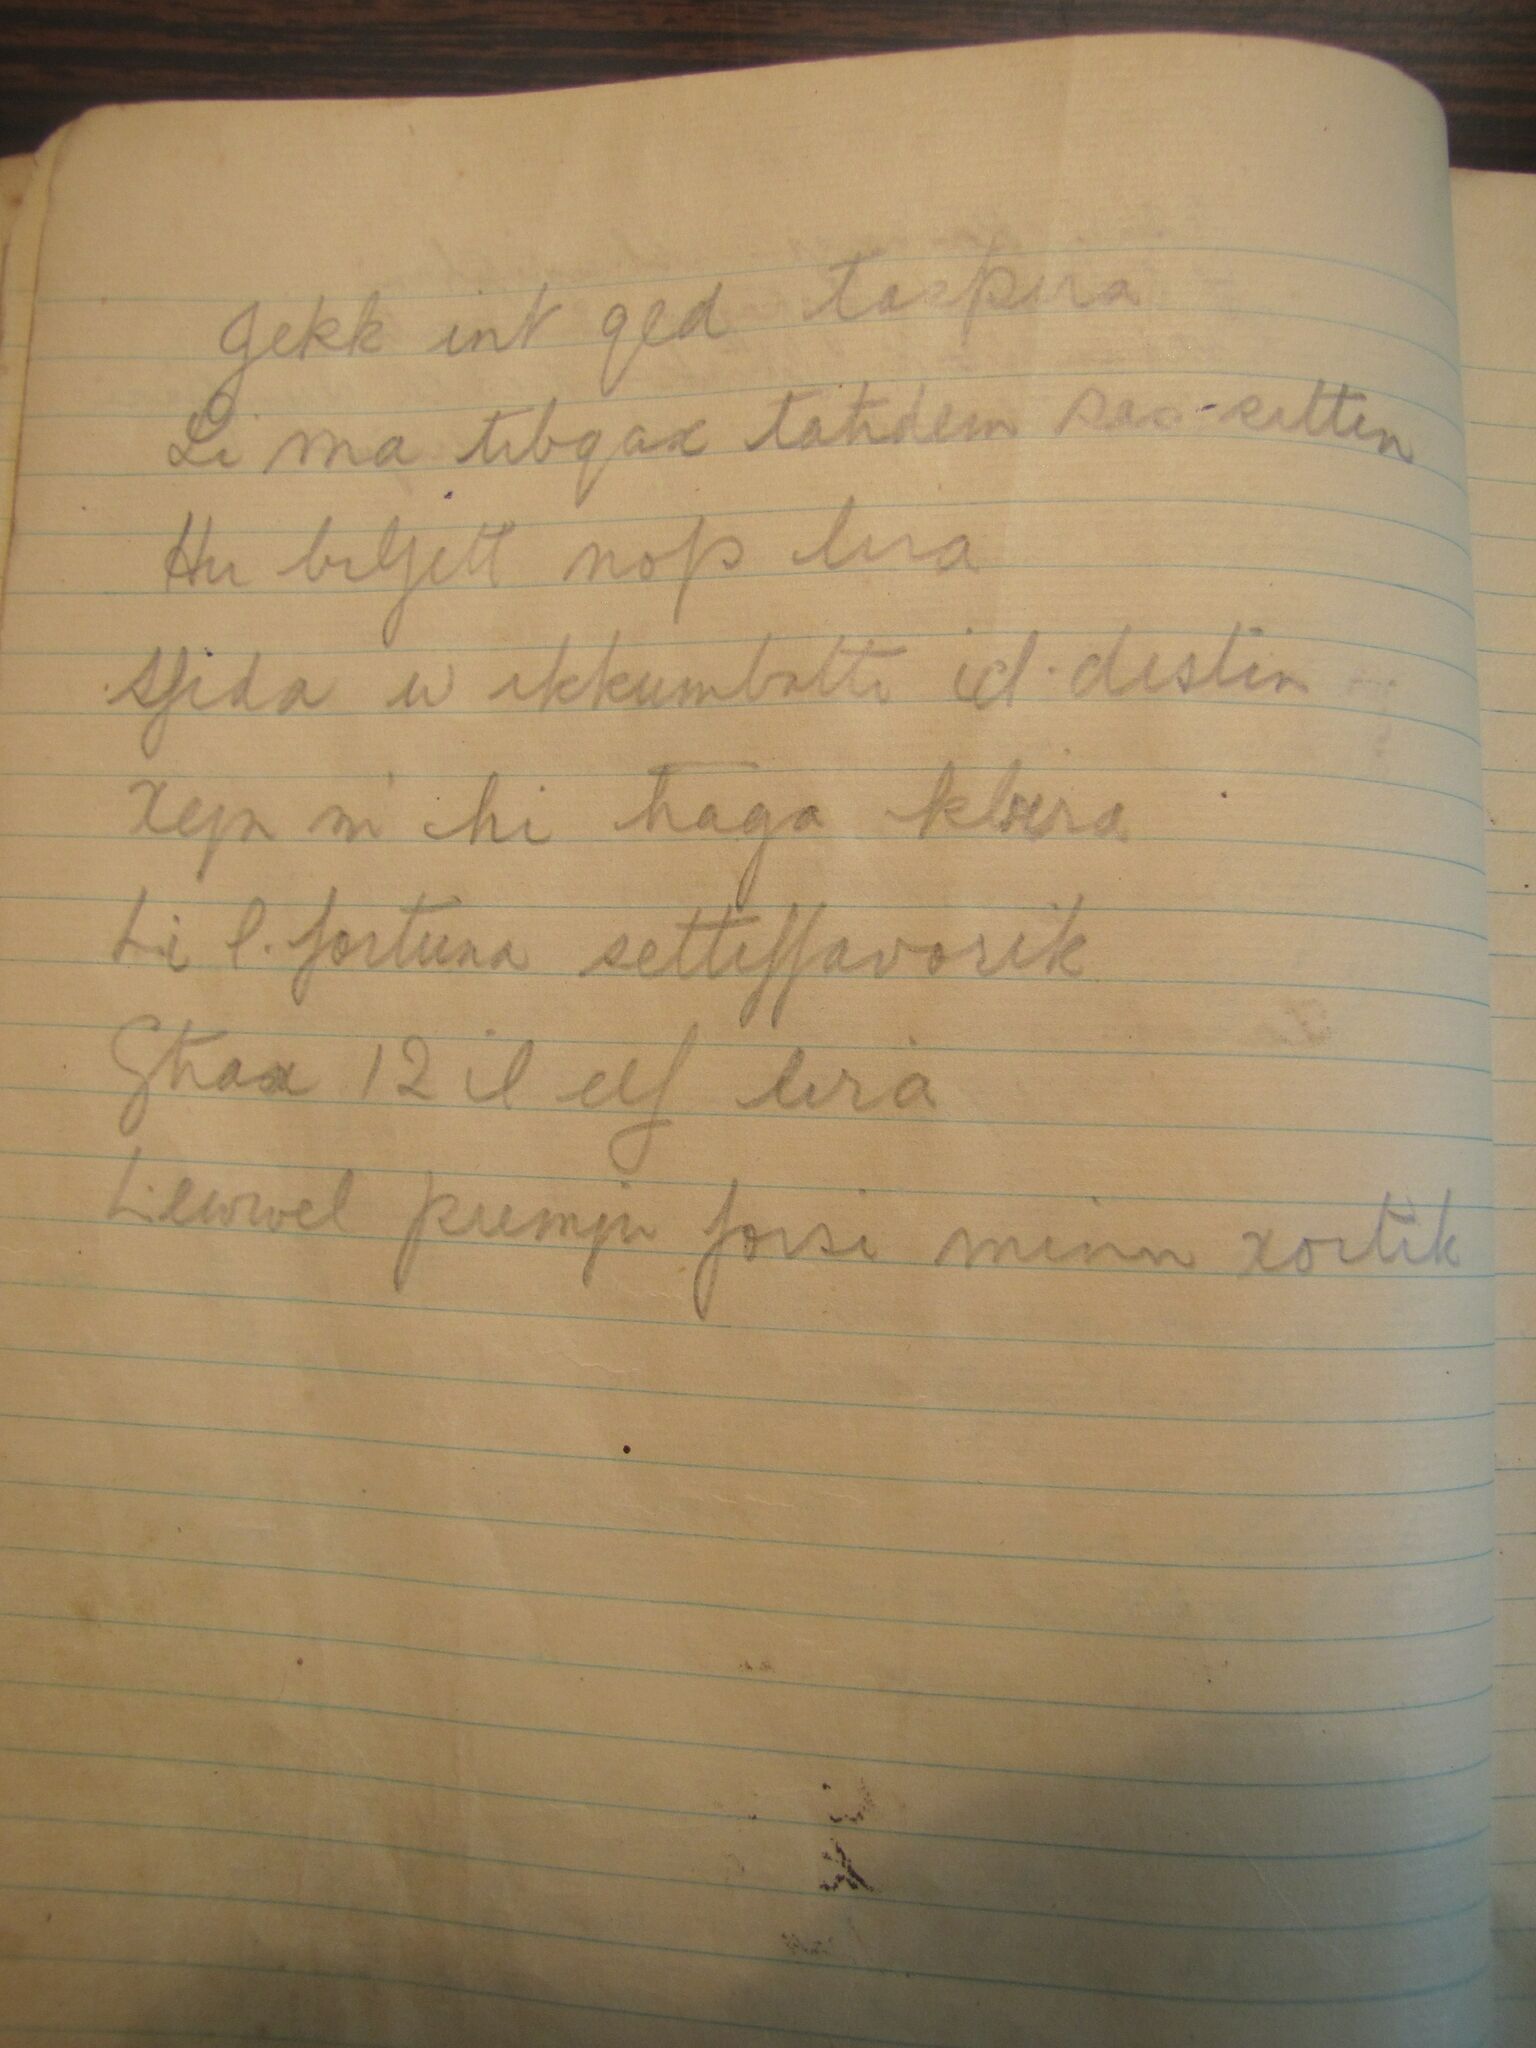 Jekk int qed taspira
Li ma tibqax taħdem sas-sittin
Hu biljett nofs lira
Sfida u ikkumbatti id-destin
Xejn m'hi ħaġa kbira
Li l-fortuna settiffavorik
Għax 12 il elf lira
L-ewwel premju forsi minn xortik